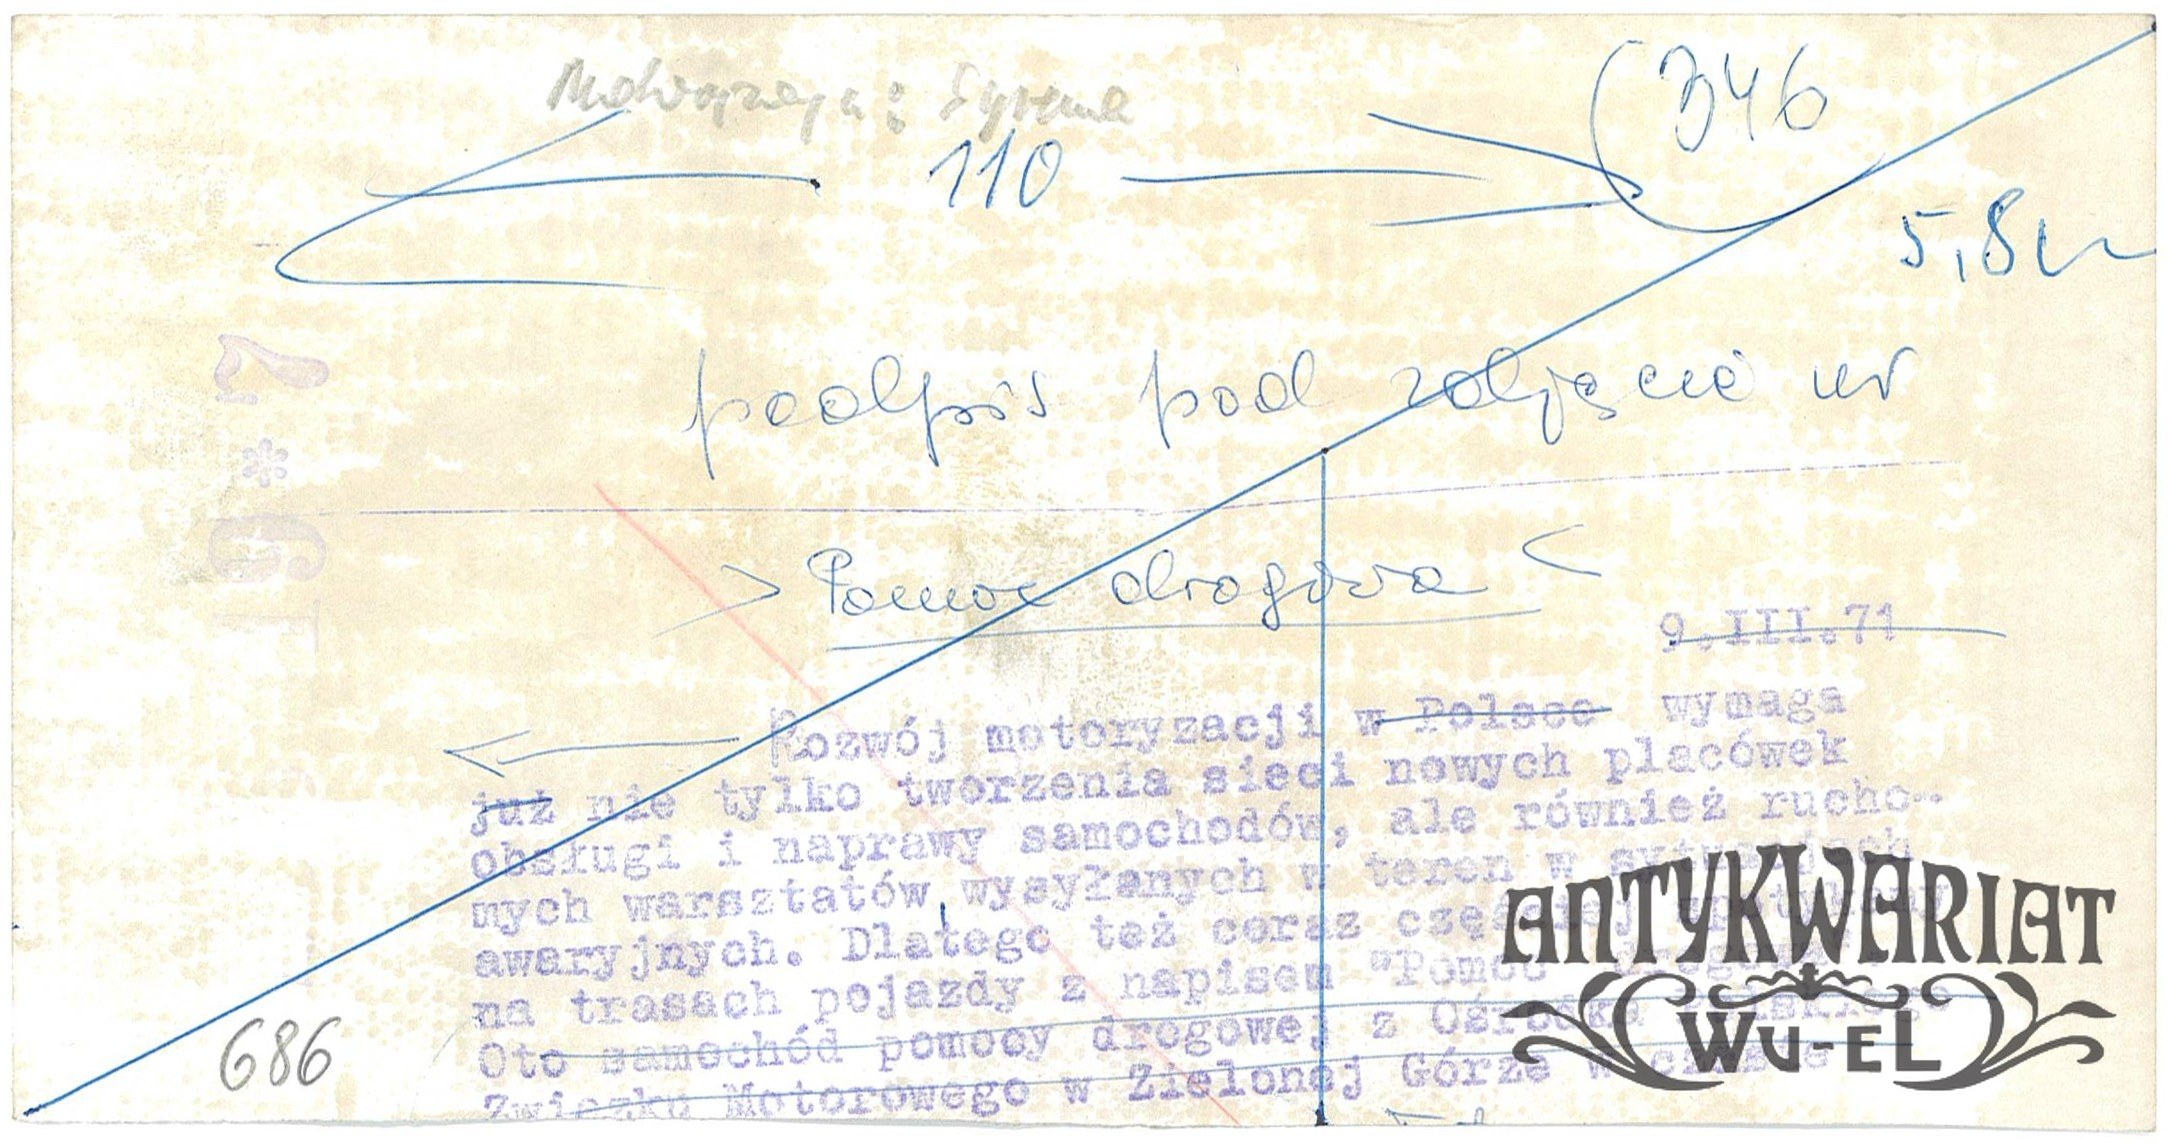 346
110
5,8
podpis pod zdjęcie nr
> Pomoc drogowa <
9.III.71
Rozwój motoryzacji w Polsce wymaga
już nie tylko tworzenia sieci nowych placówek
obsługi i naprawy samochodów, ale również rucho-
mych warsztatów wysyłanych w teren w
awaryjnych. Dlatego też coraz
na trasach pojazdy z napisem "Pomoc
Oto samochód pomocy drogowej z Ośrodka
Związku Motorowego w Zielonej Górze w
686
ANTYKWARIAT
WU-EL